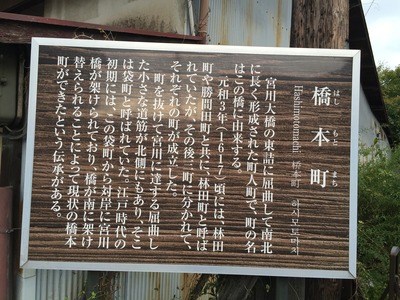 橋本町
はし もと まち
Hashimotomachi 桥本町 하시모토마치
宮川大橋の東詰に屈曲して南北
に長く形成された町人町で、町の名
はこの橋に由来する。
元和3年(1617)頃には、林田
町や勝間田町と共に、林田町と呼ば
れていたが、その後、町に分かれて、
それぞれの町が成立した。
町を抜けて宮川に達する屈曲し
た小さな道筋が北側にもあり、そこ
は袋町と呼ばれていた。江戸時代の
初期には、この袋町から対岸に宮川
橋が架けられており、橋が南に架け
替えられることによって現状の橋本
町ができたという伝承がある。